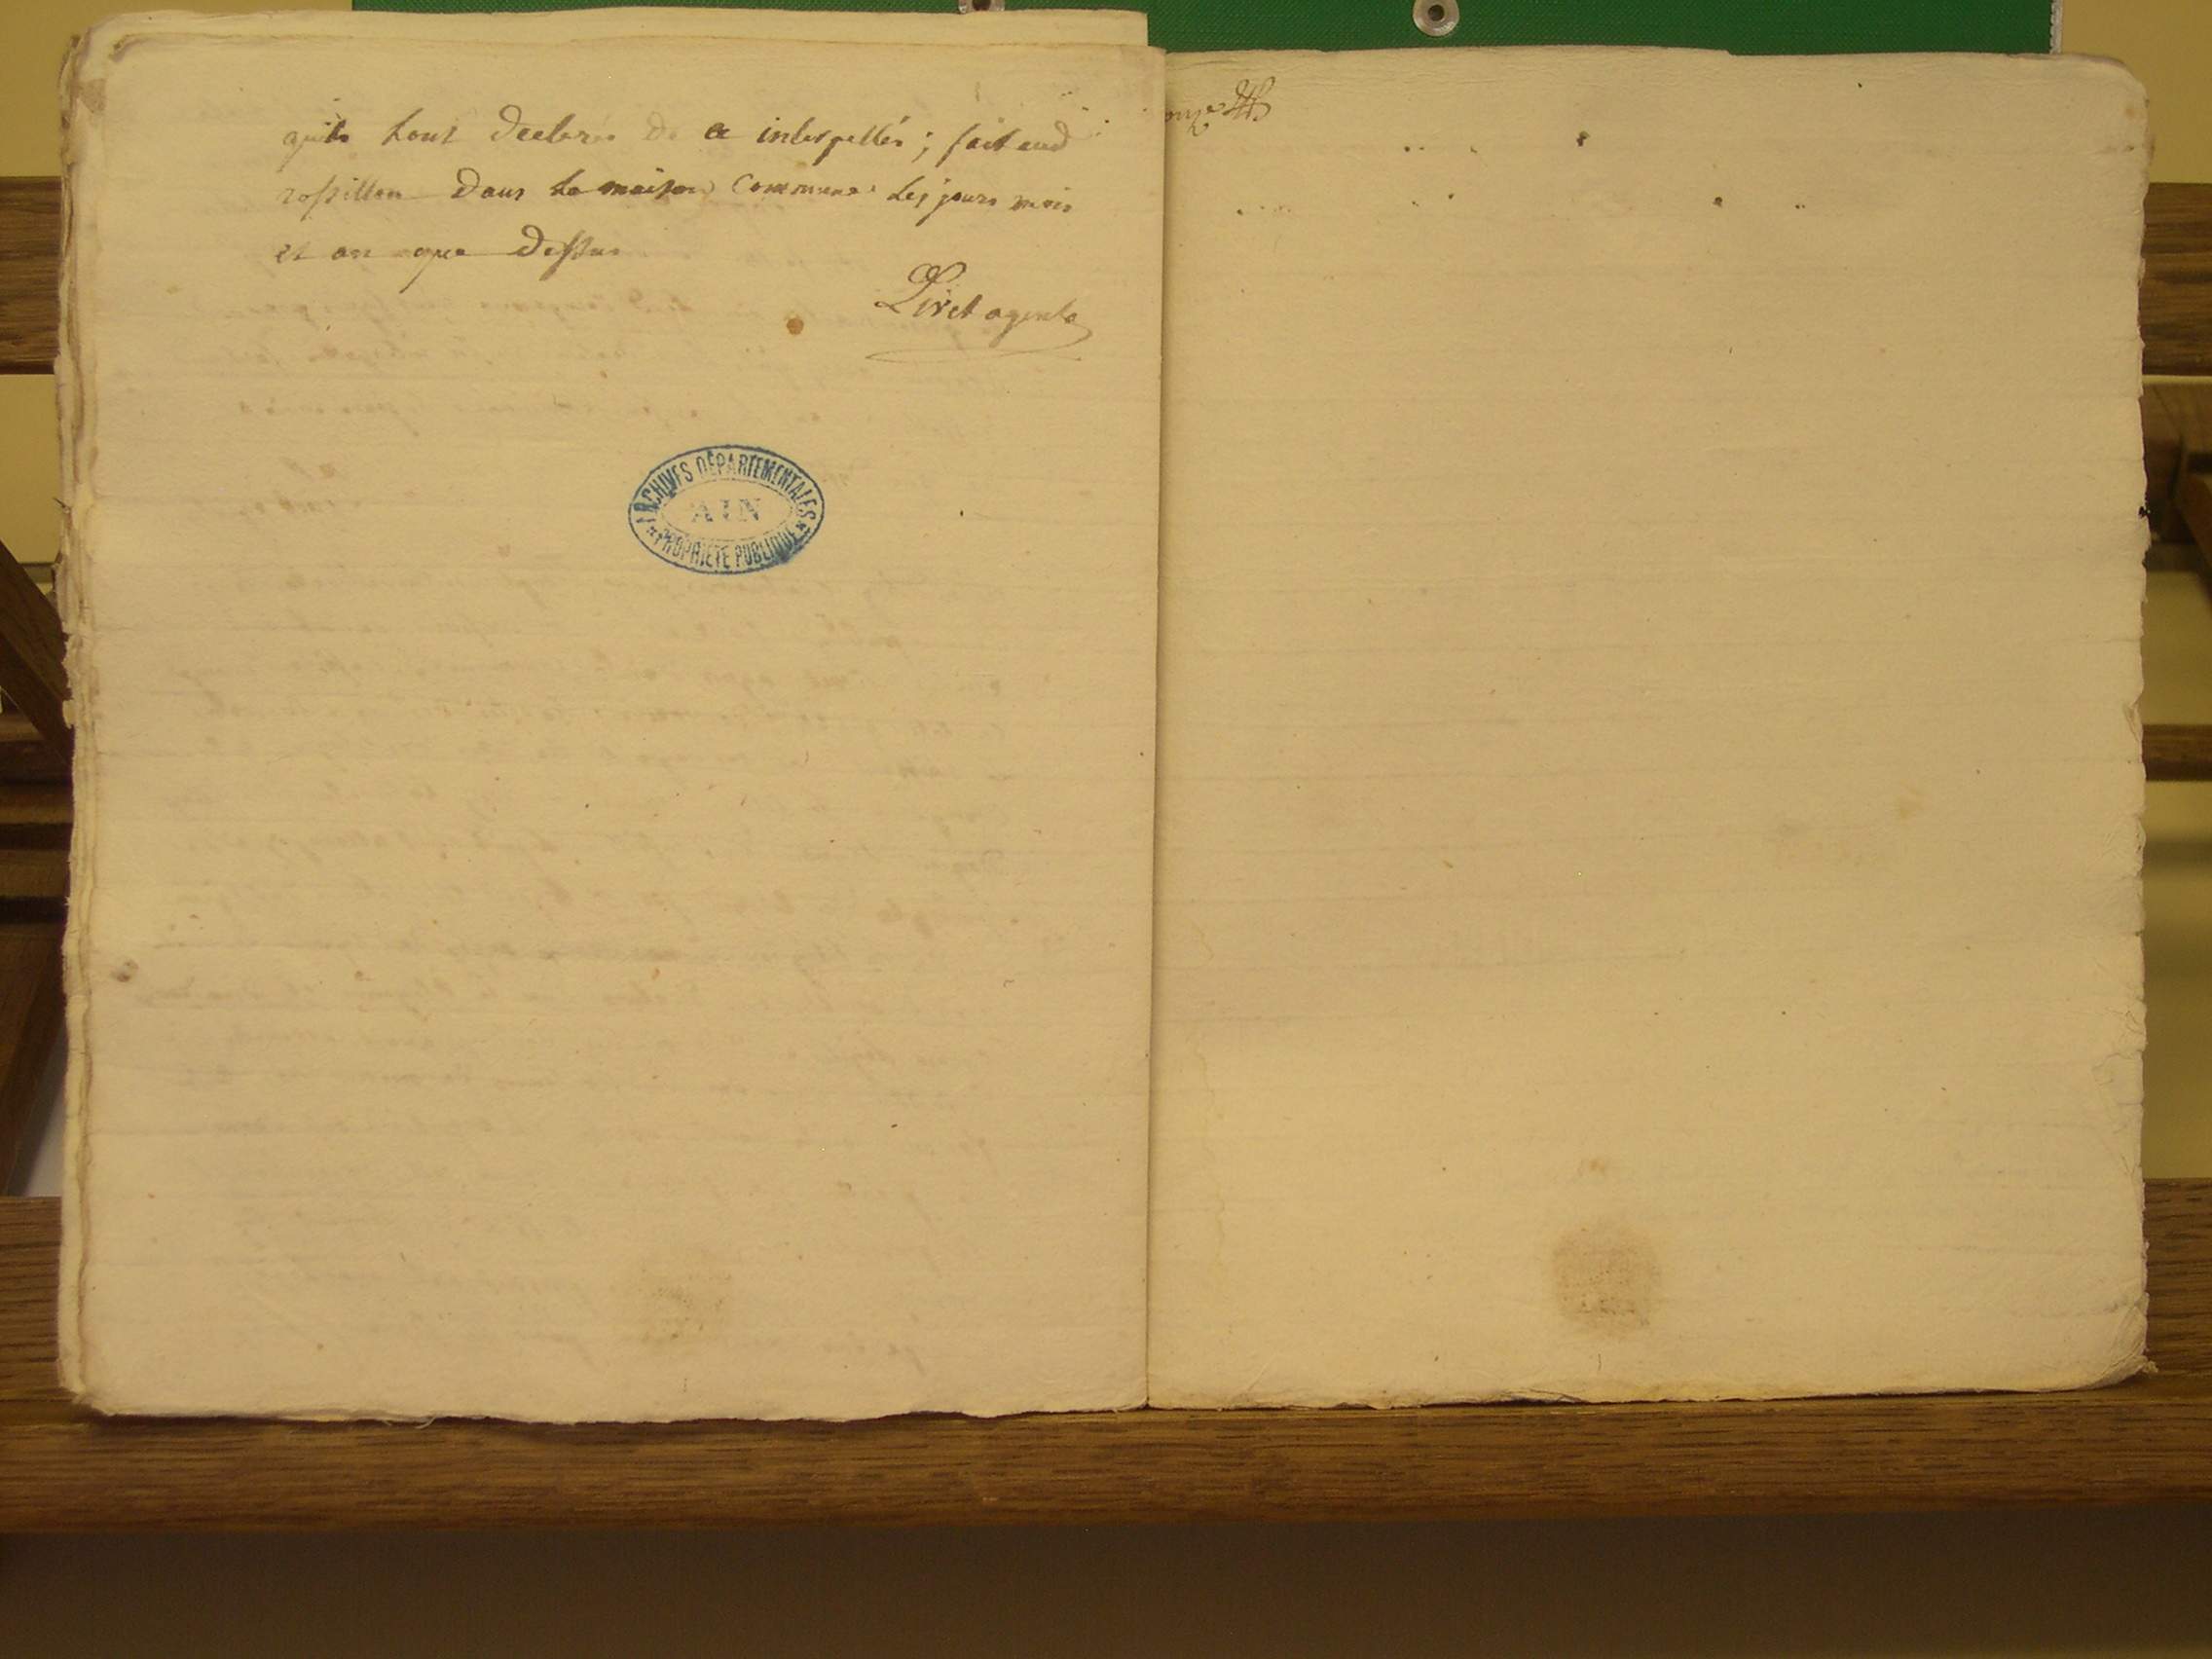 quils lont declarés de ce interpellés ; fait aud
rossillon dans la maison Commune les jours mois
et an que dessus
Livet agent
ARCHIVES DÉPARTEMENTALES
AIN
PROPRIÉTÉ PUBLIQUE
onze